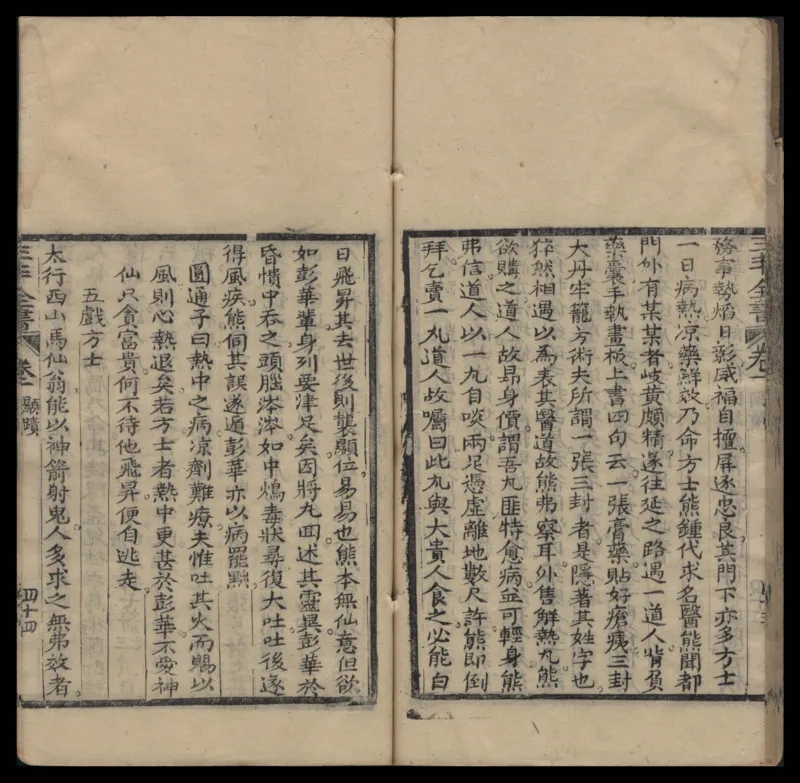 三丰全書 卷
務事勢焰日彰威福自擅屏逐忠良其門下亦多方士
一日病熱凉藥鮮效乃命方士熊鍾代求名醫熊聞都
門外有某某者岐黄頗精遂往延之路遇一道人背負
藥囊手執畫板上書四句云一張膏藥貼好瘡痍三封
大丹牢籠方術夫所謂一張三封者是隱著其姓字也
猝然相遇以為表其醫道故熊弗察耳外售解熱丸熊
欲購之道人故昻身價謂吾丸匪特愈病並可輕身熊
弗信道人以一丸自啖兩足憑虛離地數尺許熊即倒
拜乞賣一丸道人故嘱曰此丸與大貴人食之必能白
日飛昇其去世後則襲顯位易易也熊本無仙意但欲
如彭華輩身列要津足矣因將丸回述其靈異彭華於
昏憒中吞之頭腦涔涔如中鴆毒狀尋復大吐吐後遂
得風疾熊伺其誤遂遁彭華亦以病罷黜
圓通子曰熱中之病凉劑難療夫惟吐其火而賜以
風則心熱退矣若方士者熱中更甚於彭華不愛神
仙只貪富貴何不待他飛昇便自逃走
五戲方士
太行西山馬仙翁能以神箭射鬼人多求之無弗效者
三丰全書 卷 顯蹟 四十四